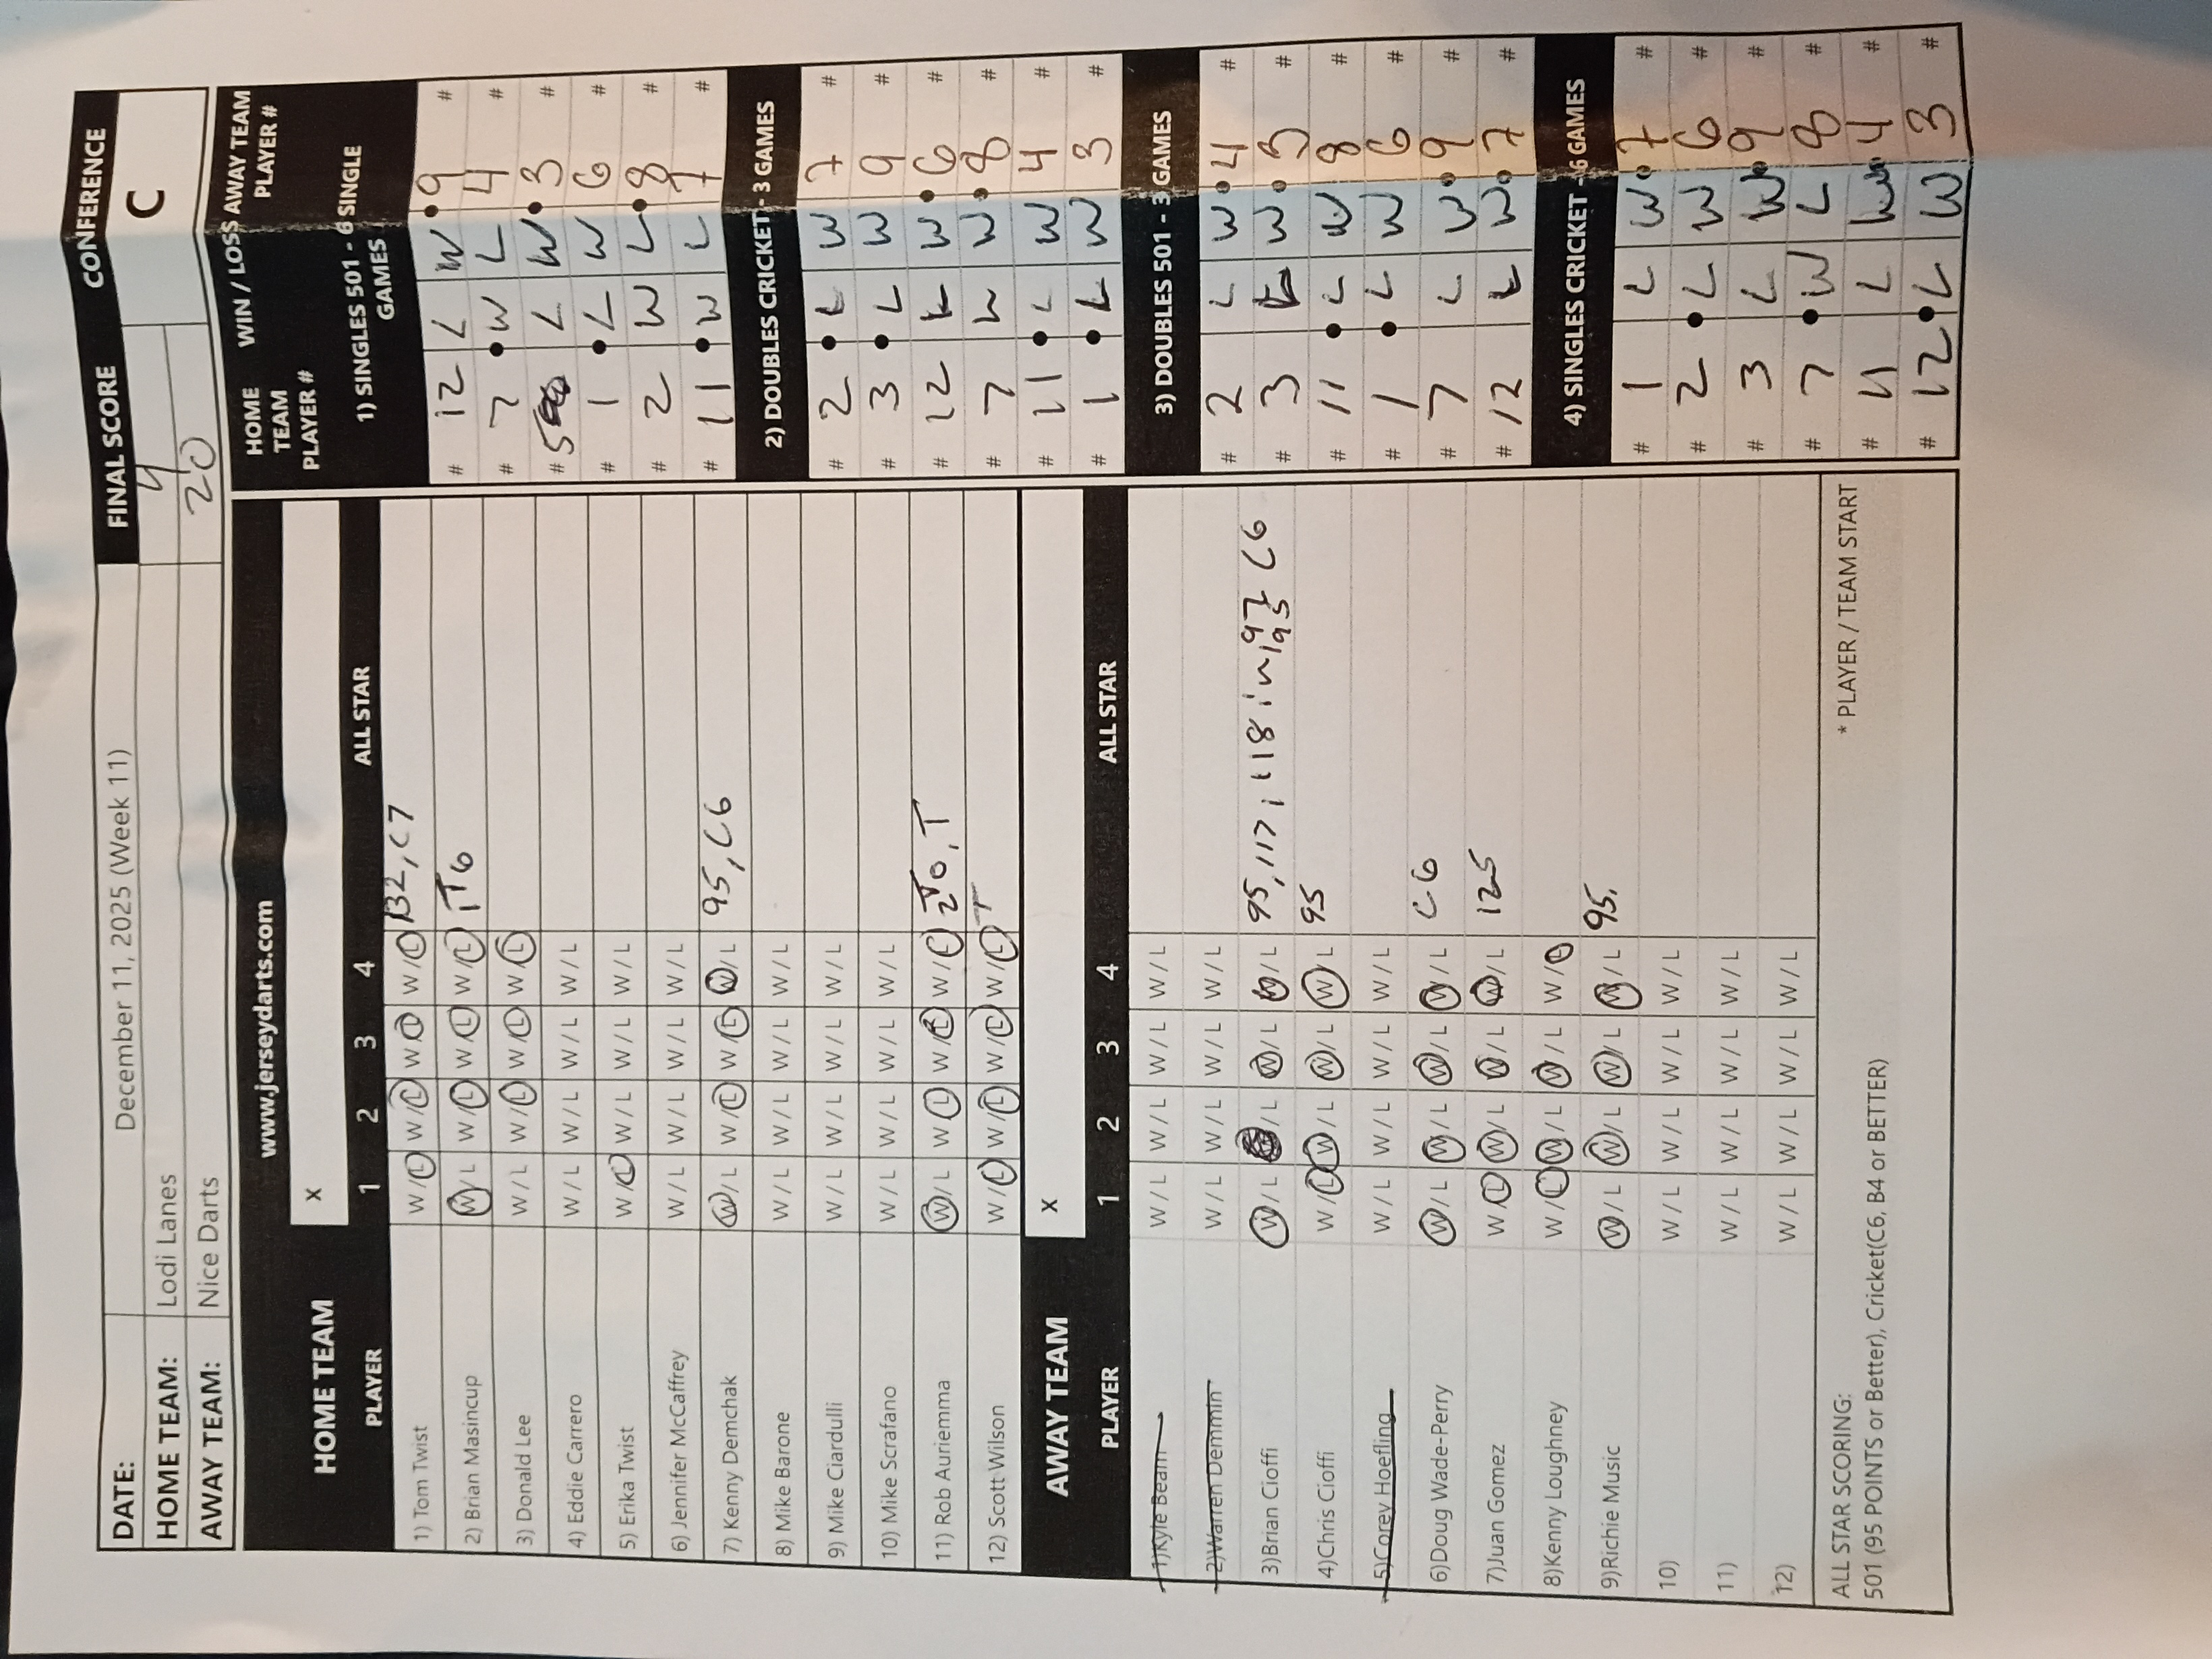 DATE: December 11, 2025 (Week 11) FINAL SCORE CONFERENCE
HOME TEAM: Lodi Lanes 4 C
AWAY TEAM: Nice Darts 20
www.jerseydarts.com
HOME TEAM x
PLAYER 1 2 3 4 ALL STAR
1) Tom Twist W/L W/L W/L W/L B2, C7
2) Brian Masincup W/L W/L W/L W/L 1T6
3) Donald Lee W/L W/L W/L W/L
4) Eddie Carrero W/L W/L W/L W/L
5) Erika Twist W/L W/L W/L W/L
6) Jennifer McCaffrey W/L W/L W/L W/L
7) Kenny Demchak W/L W/L W/L W/L 95, C6
8) Mike Barone W/L W/L W/L W/L
9) Mike Ciardulli W/L W/L W/L W/L
10) Mike Scrafano W/L W/L W/L W/L
11) Rob Auriemma W/L W/L W/L W/L 2T0, T
12) Scott Wilson W/L W/L W/L W/L T
AWAY TEAM x
PLAYER 1 2 3 4 ALL STAR
1)Kyle Beam W/L W/L W/L W/L
2)Warren Demmin W/L W/L W/L W/L
3)Brian Cioffi W/L W/L W/L W/L 95, 117, 118 in, 97 95 C6
4)Chris Cioffi W/L W/L W/L W/L 95
5)Corey Hoefling W/L W/L W/L W/L
6)Doug Wade-Perry W/L W/L W/L W/L C6
7)Juan Gomez W/L W/L W/L W/L 125
8)Kenny Loughney W/L W/L W/L W/L
9)Richie Music W/L W/L W/L W/L 95.
10) W/L W/L W/L W/L
11) W/L W/L W/L W/L
12) W/L W/L W/L W/L
ALL STAR SCORING: * PLAYER / TEAM START
501 (95 POINTS or Better), Cricket(C6, B4 or BETTER)
HOME TEAM PLAYER # WIN / LOSS AWAY TEAM PLAYER #
1) SINGLES 501 - 6 SINGLE GAMES
# 12 L W 9 #
# 7 W L 4 #
# 5 L W 3 #
# 1 L W 6 #
# 2 W L 8 #
# 11 W L 7 #
2) DOUBLES CRICKET - 3 GAMES
# 2 L W 7 #
# 3 L W 9 #
# 12 L W 6 #
# 7 L W 8 #
# 11 L W 4 #
# 1 L W 3 #
3) DOUBLES 501 - 3 GAMES
# 2 L W 4 #
# 3 L W 3 #
# 11 L W 8 #
# 1 L W 6 #
# 7 L W 9 #
# 12 L W 7 #
4) SINGLES CRICKET - 6 GAMES
# 1 L W 7 #
# 2 L W 6 #
# 3 L W 9 #
# 7 W L 8 #
# 11 L W 4 #
# 12 L W 3 #